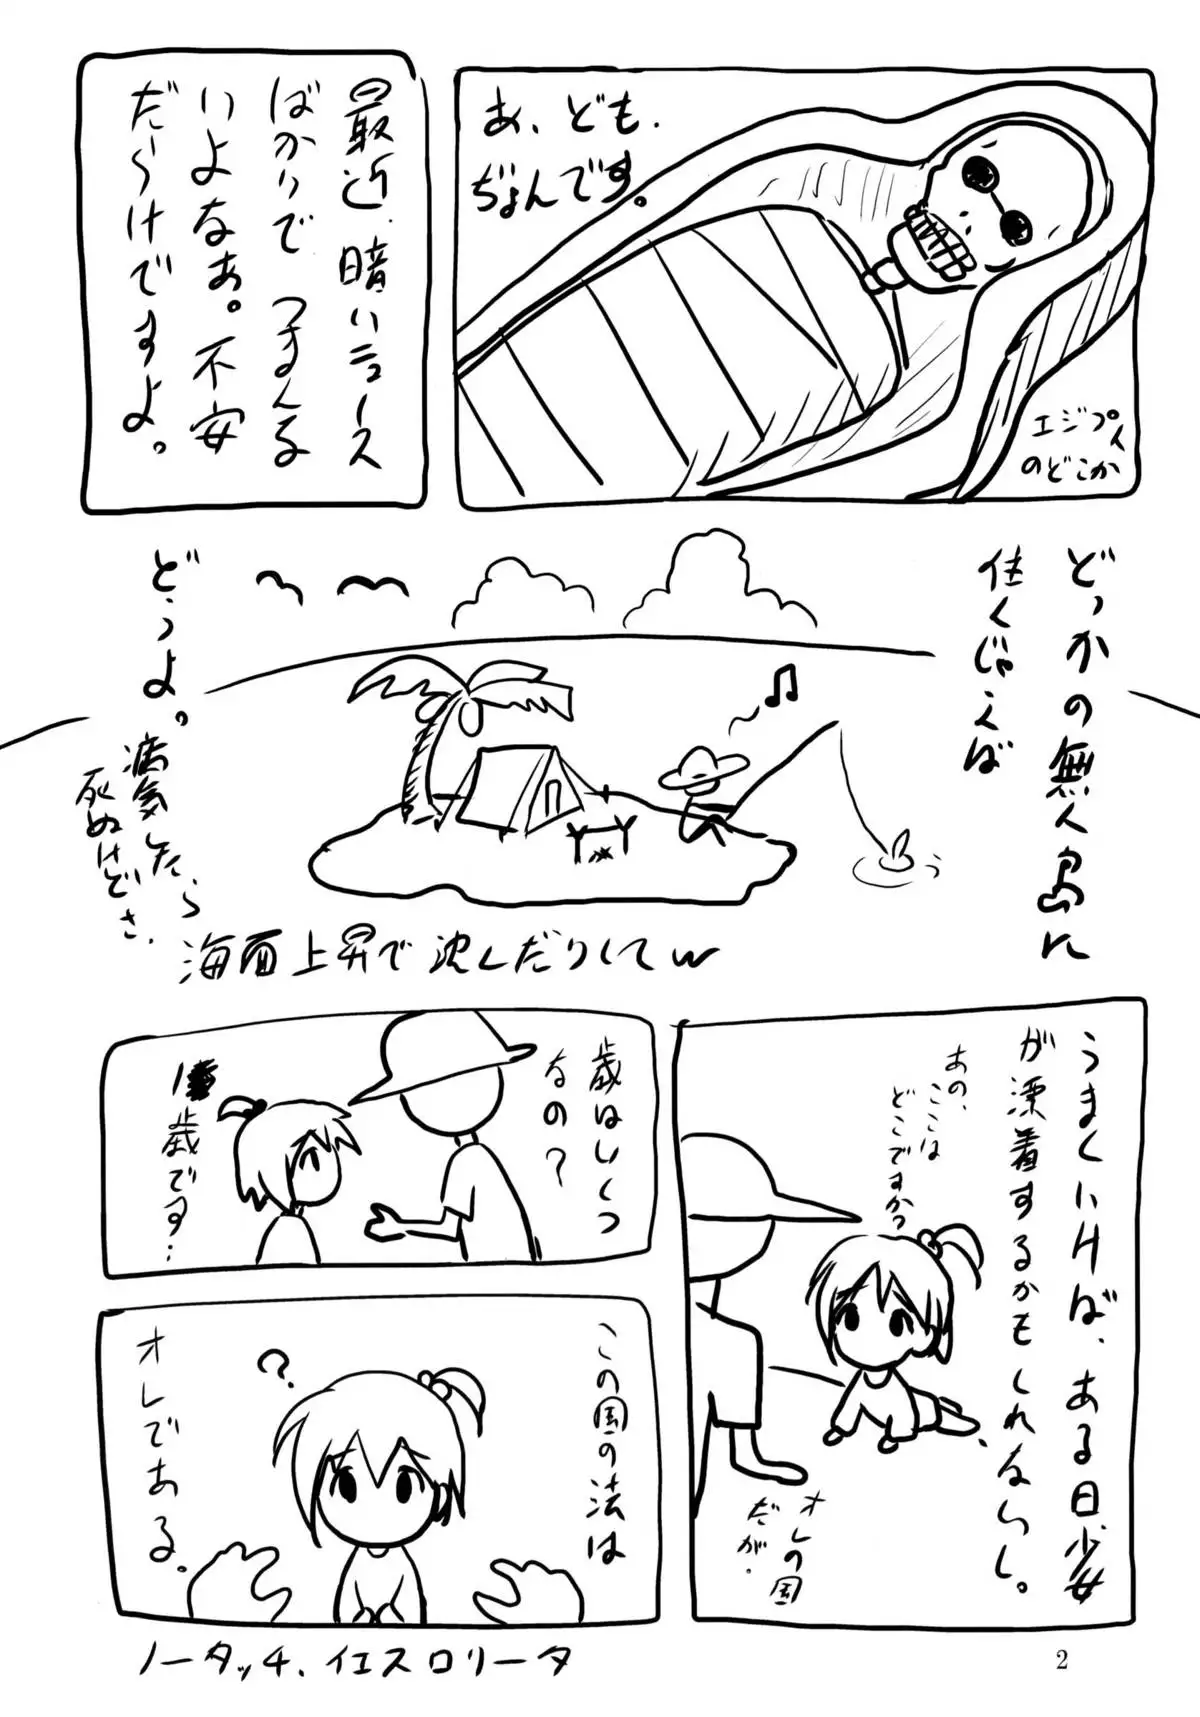 あ、ども、
ぢょんです。
エジプト
のどこか
最近、暗いニュース
ばかりで つまんな
いよなぁ。不安
だらけですよ。
どっかの無人島に
住くじゃえば
どうよ。
病気したら
死ぬけどさ、
海面上昇で沈んだりしてw
うまくいけば、ある日少女
が漂着するかもしれないし。
あの、
ここは
どこですか?
オレの国
だが、
歳はいくつ
なの?
歳です…
この国の法は
オレである。
?
ノータッチ、イエスロリータ
2